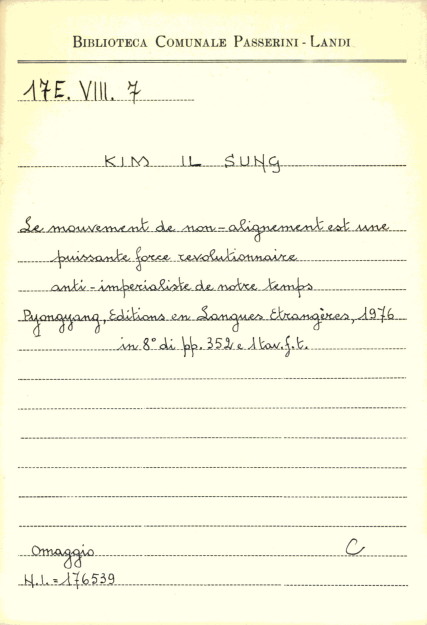 BIBLIOTECA COMUNALE PASSERINI - LANDI
17E. VIII. 7
KIM IL SUNG
Le mouvement de non-alignement est une
puissante force revolutionnaire
anti-imperialiste de notre temps
Pyongyang, Editions en Langues Etrangères, 1976
in 8° di pp. 352 e 1 tav. f. t.
Omaggio C
N.I. = 176539